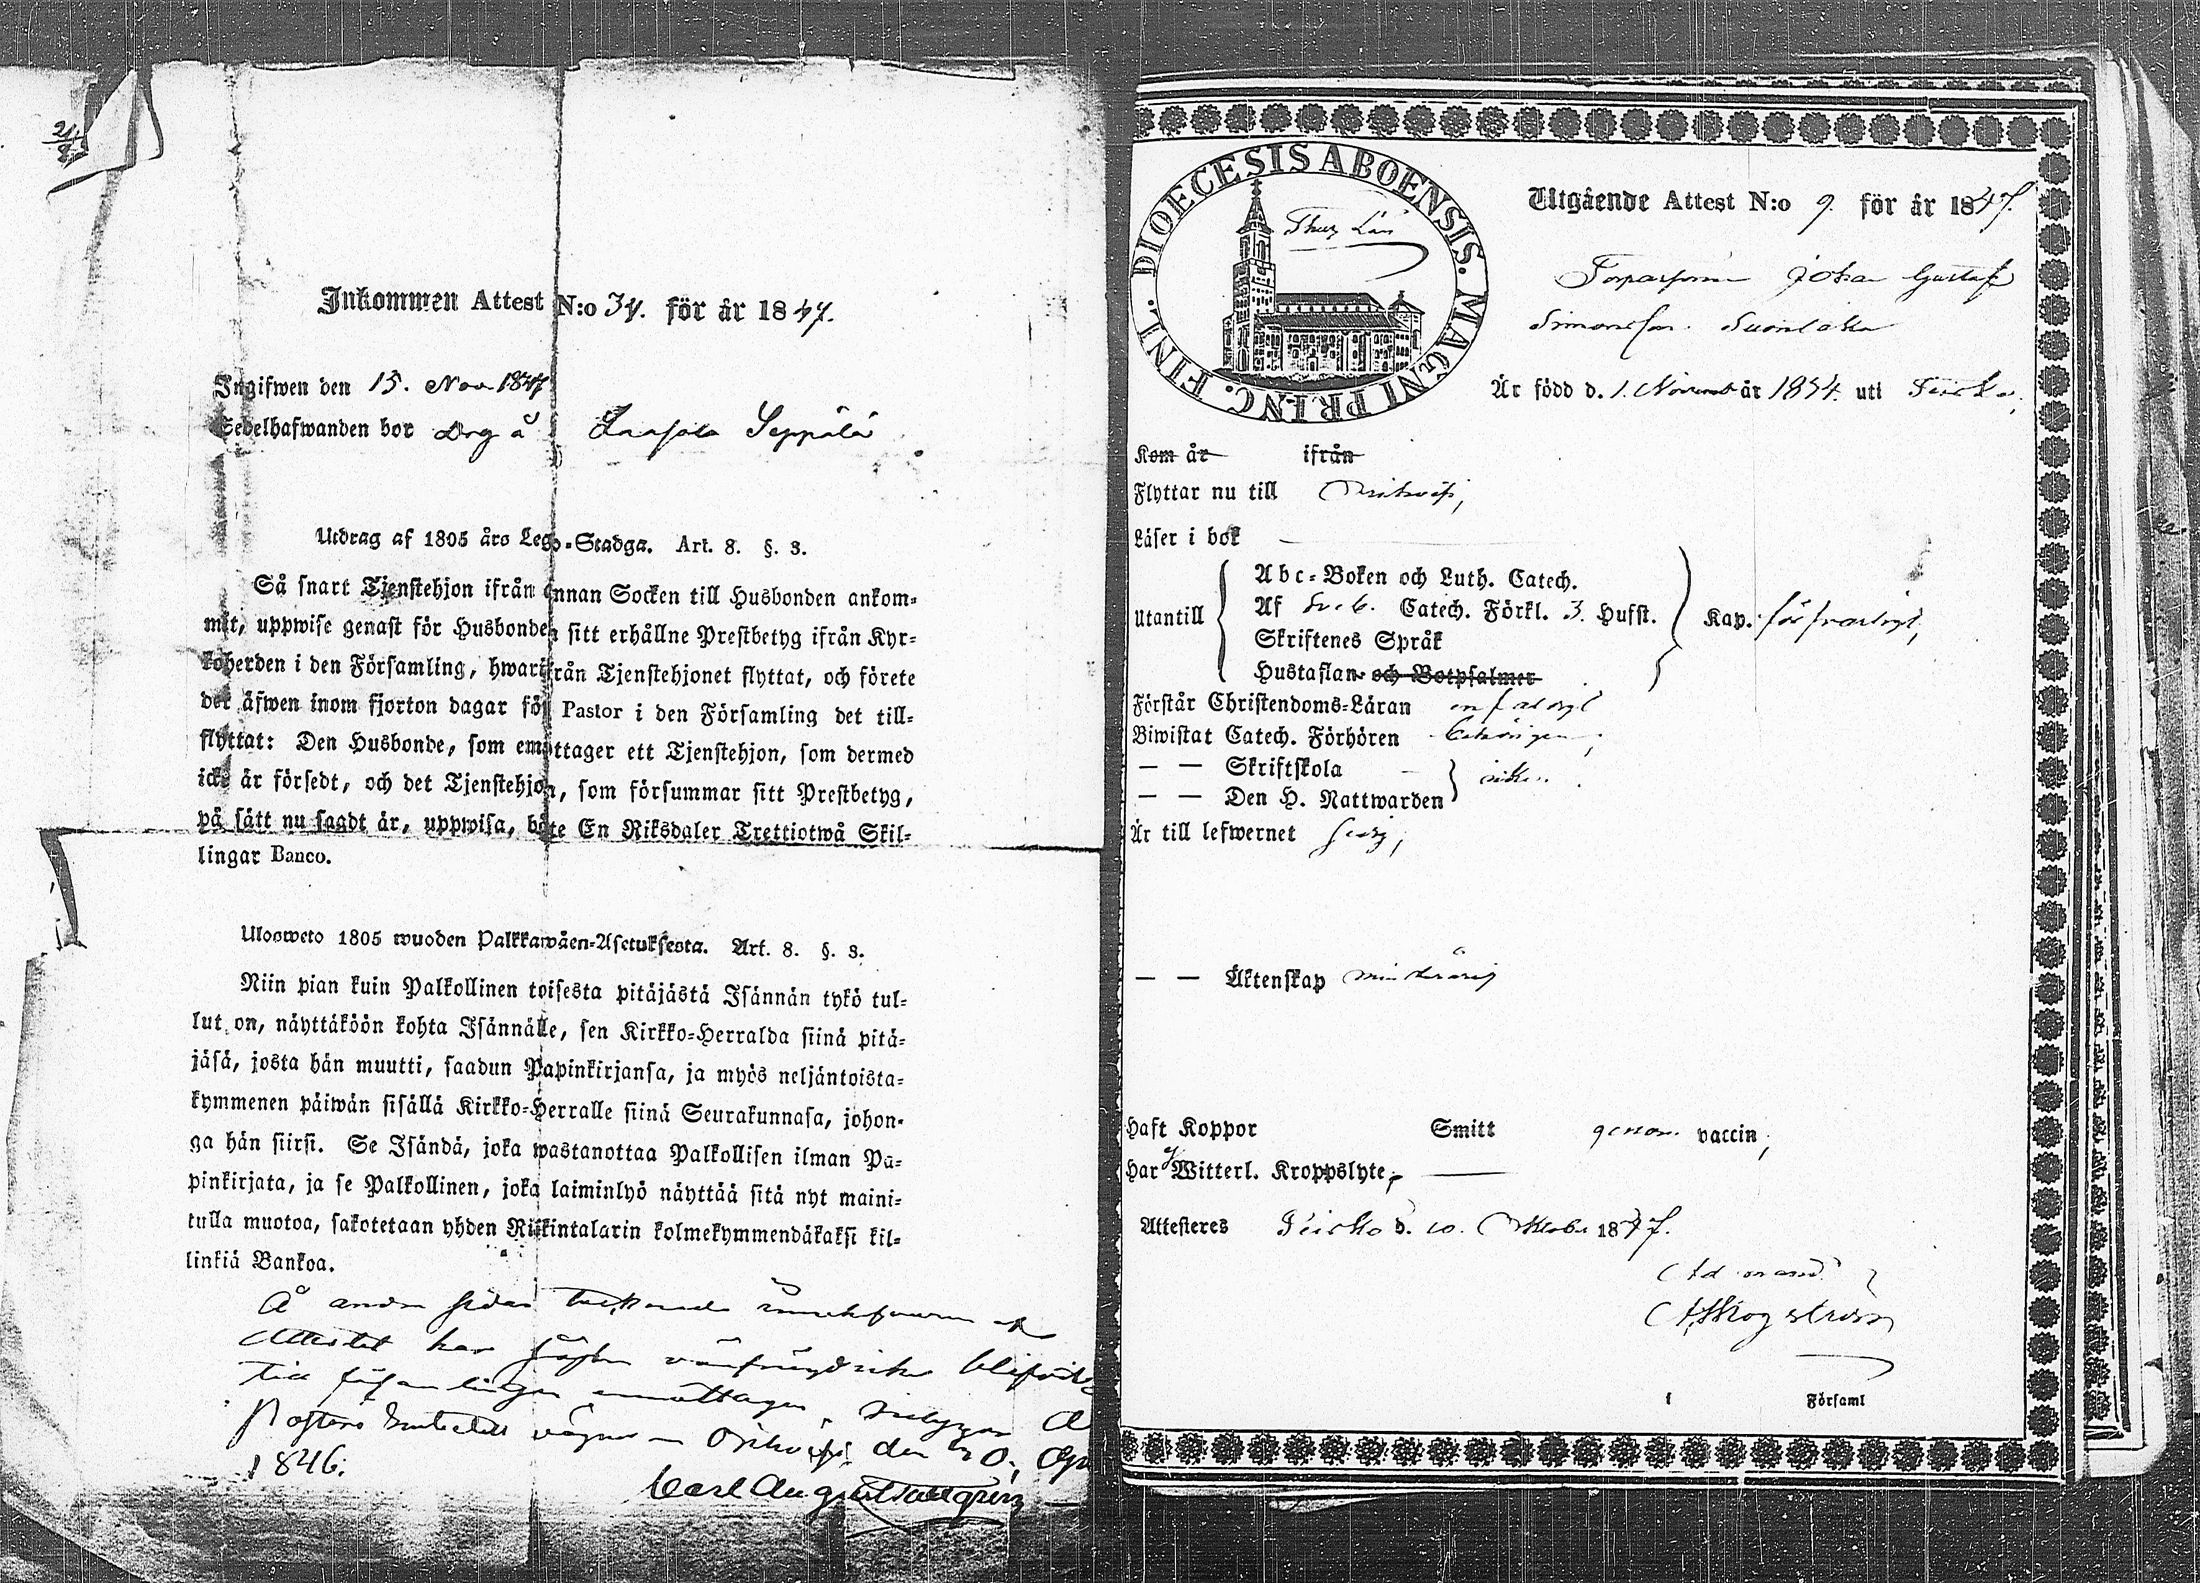 Inkommen Attest N:o 34. för år 1847.
Ingifwen den 15. Nov 1847
Sedelhafwanden bor Drg å Laasola Seppälä
Utdrag af 1805 års Lego-Stadga. Art. 8. §. 3.
Så snart Tjenstehjon ifrån annan Socken till Husbonden ankom-
mit, uppwise genast för Husbonden sitt erhållne Prestbetyg ifrån Kyr-
koherden i den Församling, hwarifrån Tjenstehjonet flyttat, och förete
det äfwen inom fjorton dagar för Pastor i den Församling det till-
flyttat: Den Husbonde, som emottager ett Tjenstehjon, som dermed
icke är försedt, och det Tjenstehjon, som försummar sitt Prestbetyg,
på sätt nu sagdt är, uppwisa, böte En Riksdaler Trettiotwå Skil-
lingar Banco.
Ulosweto 1805 wuoden Palkkawäen-Asetuksesta. Art. 8. §. 3.
Niin pian kuin Palkollinen toisesta pitäjästä Isännän tykö tul-
lut on, näyttäköön kohta Isännälle, sen Kirkko-Herralda siinä pitä-
jäsä, josta hän muutti, saadun Papinkirjansa, ja myös neljäntoista-
kymmenen päiwän sisällä Kirkko-Herralle siinä Seurakunnasa, johon-
ga hän siirsi. Se Isändä, joka wastanottaa Palkollisen ilman Pa-
pinkirjata, ja se Palkollinen, joka laiminlyö näyttää sitä nyt maini-
tulla muotoa, sakotetaan yhden Riikintalarin kolmekymmendäkaksi kil-
linkiä Bankoa.
Å andra sidan
Attestet har
till församlingen emottagen
Pastors Embetets vägnar Orihvesi den 20.
1846.
Carl August
DIOECESIS ABOENSIS. MAGNI PRINC. FINL.
Utgående Attest N:o 9. för år 1847.
Johan Gustaf
Simonsson Suonlaka
Är född d. 1. Novemb år 1834. uti Teisko,
Kom år ifrån
Flyttar nu till Orihvesi,
Läser i bok
Utantill
Abc-Boken och Luth. Catech.
Af Sveb. Catech. Förkl. 3. Hufst. Kap. försvarligt,
Skriftenes Språk
Hustaflan och Botpsalmer
Förstår Christendoms-Läran enfaldigt
Biwistat Catech. Förhören behörigen,
— — Skriftskola
— — Den H. Nattwarden icke.
Är till lefwernet frejd,
— — Äktenskap minderårig
Haft Koppor Smitt genom vaccin,
Har ej Witterl. Kroppslyte,
Attesteres Teisko d. 10. Oktober 1847.
Ad mand.
A. Skogström
i Församl